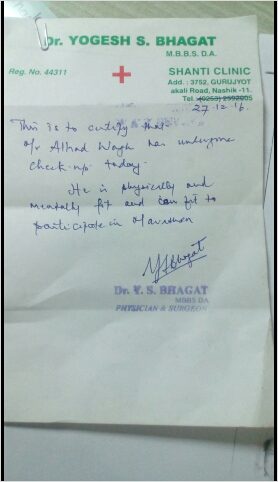 Dr. YOGESH S. BHAGAT
M.B.B.S. D.A.
Reg. No. 44311
SHANTI CLINIC
Add : 3752, GURUJYOT
akali Road, Nashik -11.
Tel. (0253) 2992005
27.12.16
This is to certify that
Mr Alhad Wagh has undergone
check-up today.
He is physically and
mentally fit and can fit to
participate in Marathon
YSBhagat
Dr. Y. S. BHAGAT
MBBS DA
PHYSICIAN & SURGEON